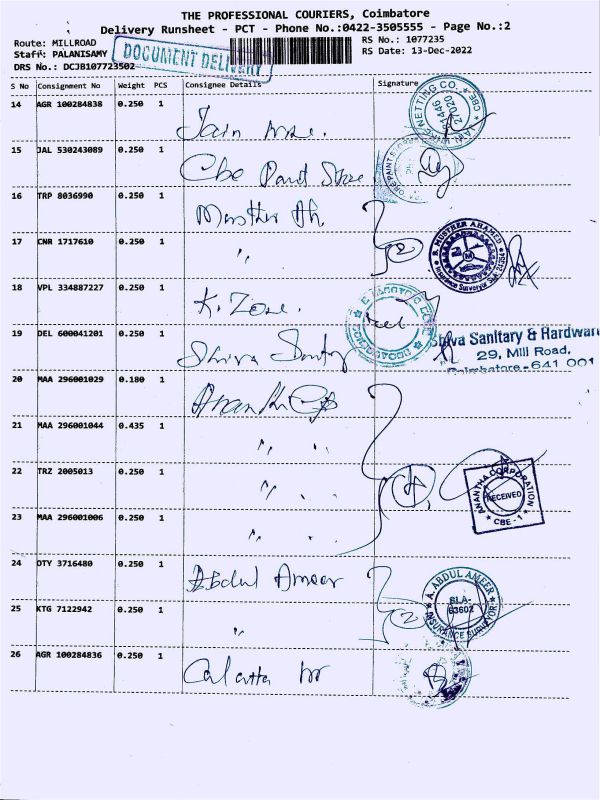 THE PROFESSIONAL COURIERS, Coimbatore
Delivery Runsheet - PCT - Phone No.:0422-3505555 - Page No.:2
Route: MILLROAD RS No.: 1077235
Staff: PALANISAMY RS Date: 13-Dec-2022
DOCUMENT DELIVERY
DRS No.: DCJB107723502
S No Consignment No Weight PCS Consignee Details Signature
14 AGR 100284838 0.250 1
Jain
NETTING CO. CBE
15 JAL 530243089 0.250 1
Cbe Paint Store
16 TRP 8036990 0.250 1
Musther Ah.
2
17 CNR 1717610 0.250 1
"
S. MUSTHER AHAMED
Insurance Surveyor
18 VPL 334887227 0.250 1
K. Zone.
19 DEL 600041201 0.250 1
Shiva Sanitary
Shiva Sanitary & Hardware
29, Mill Road,
Coimbatore-641 001
20 MAA 296001029 0.180 1
21 MAA 296001044 0.435 1
" "
22 TRZ 2005013 0.250 1
" "
4
ANANTHA CORPORATION
RECEIVED
CBE - 1
23 MAA 296001006 0.250 1
" "
24 OTY 3716480 0.250 1
Abdul Ameer
A. ABDUL AMEER
SLA-
63602
INSURANCE SURVEYOR
25 KTG 7122942 0.250 1
"
2
26 AGR 100284836 0.250 1
Calcutta